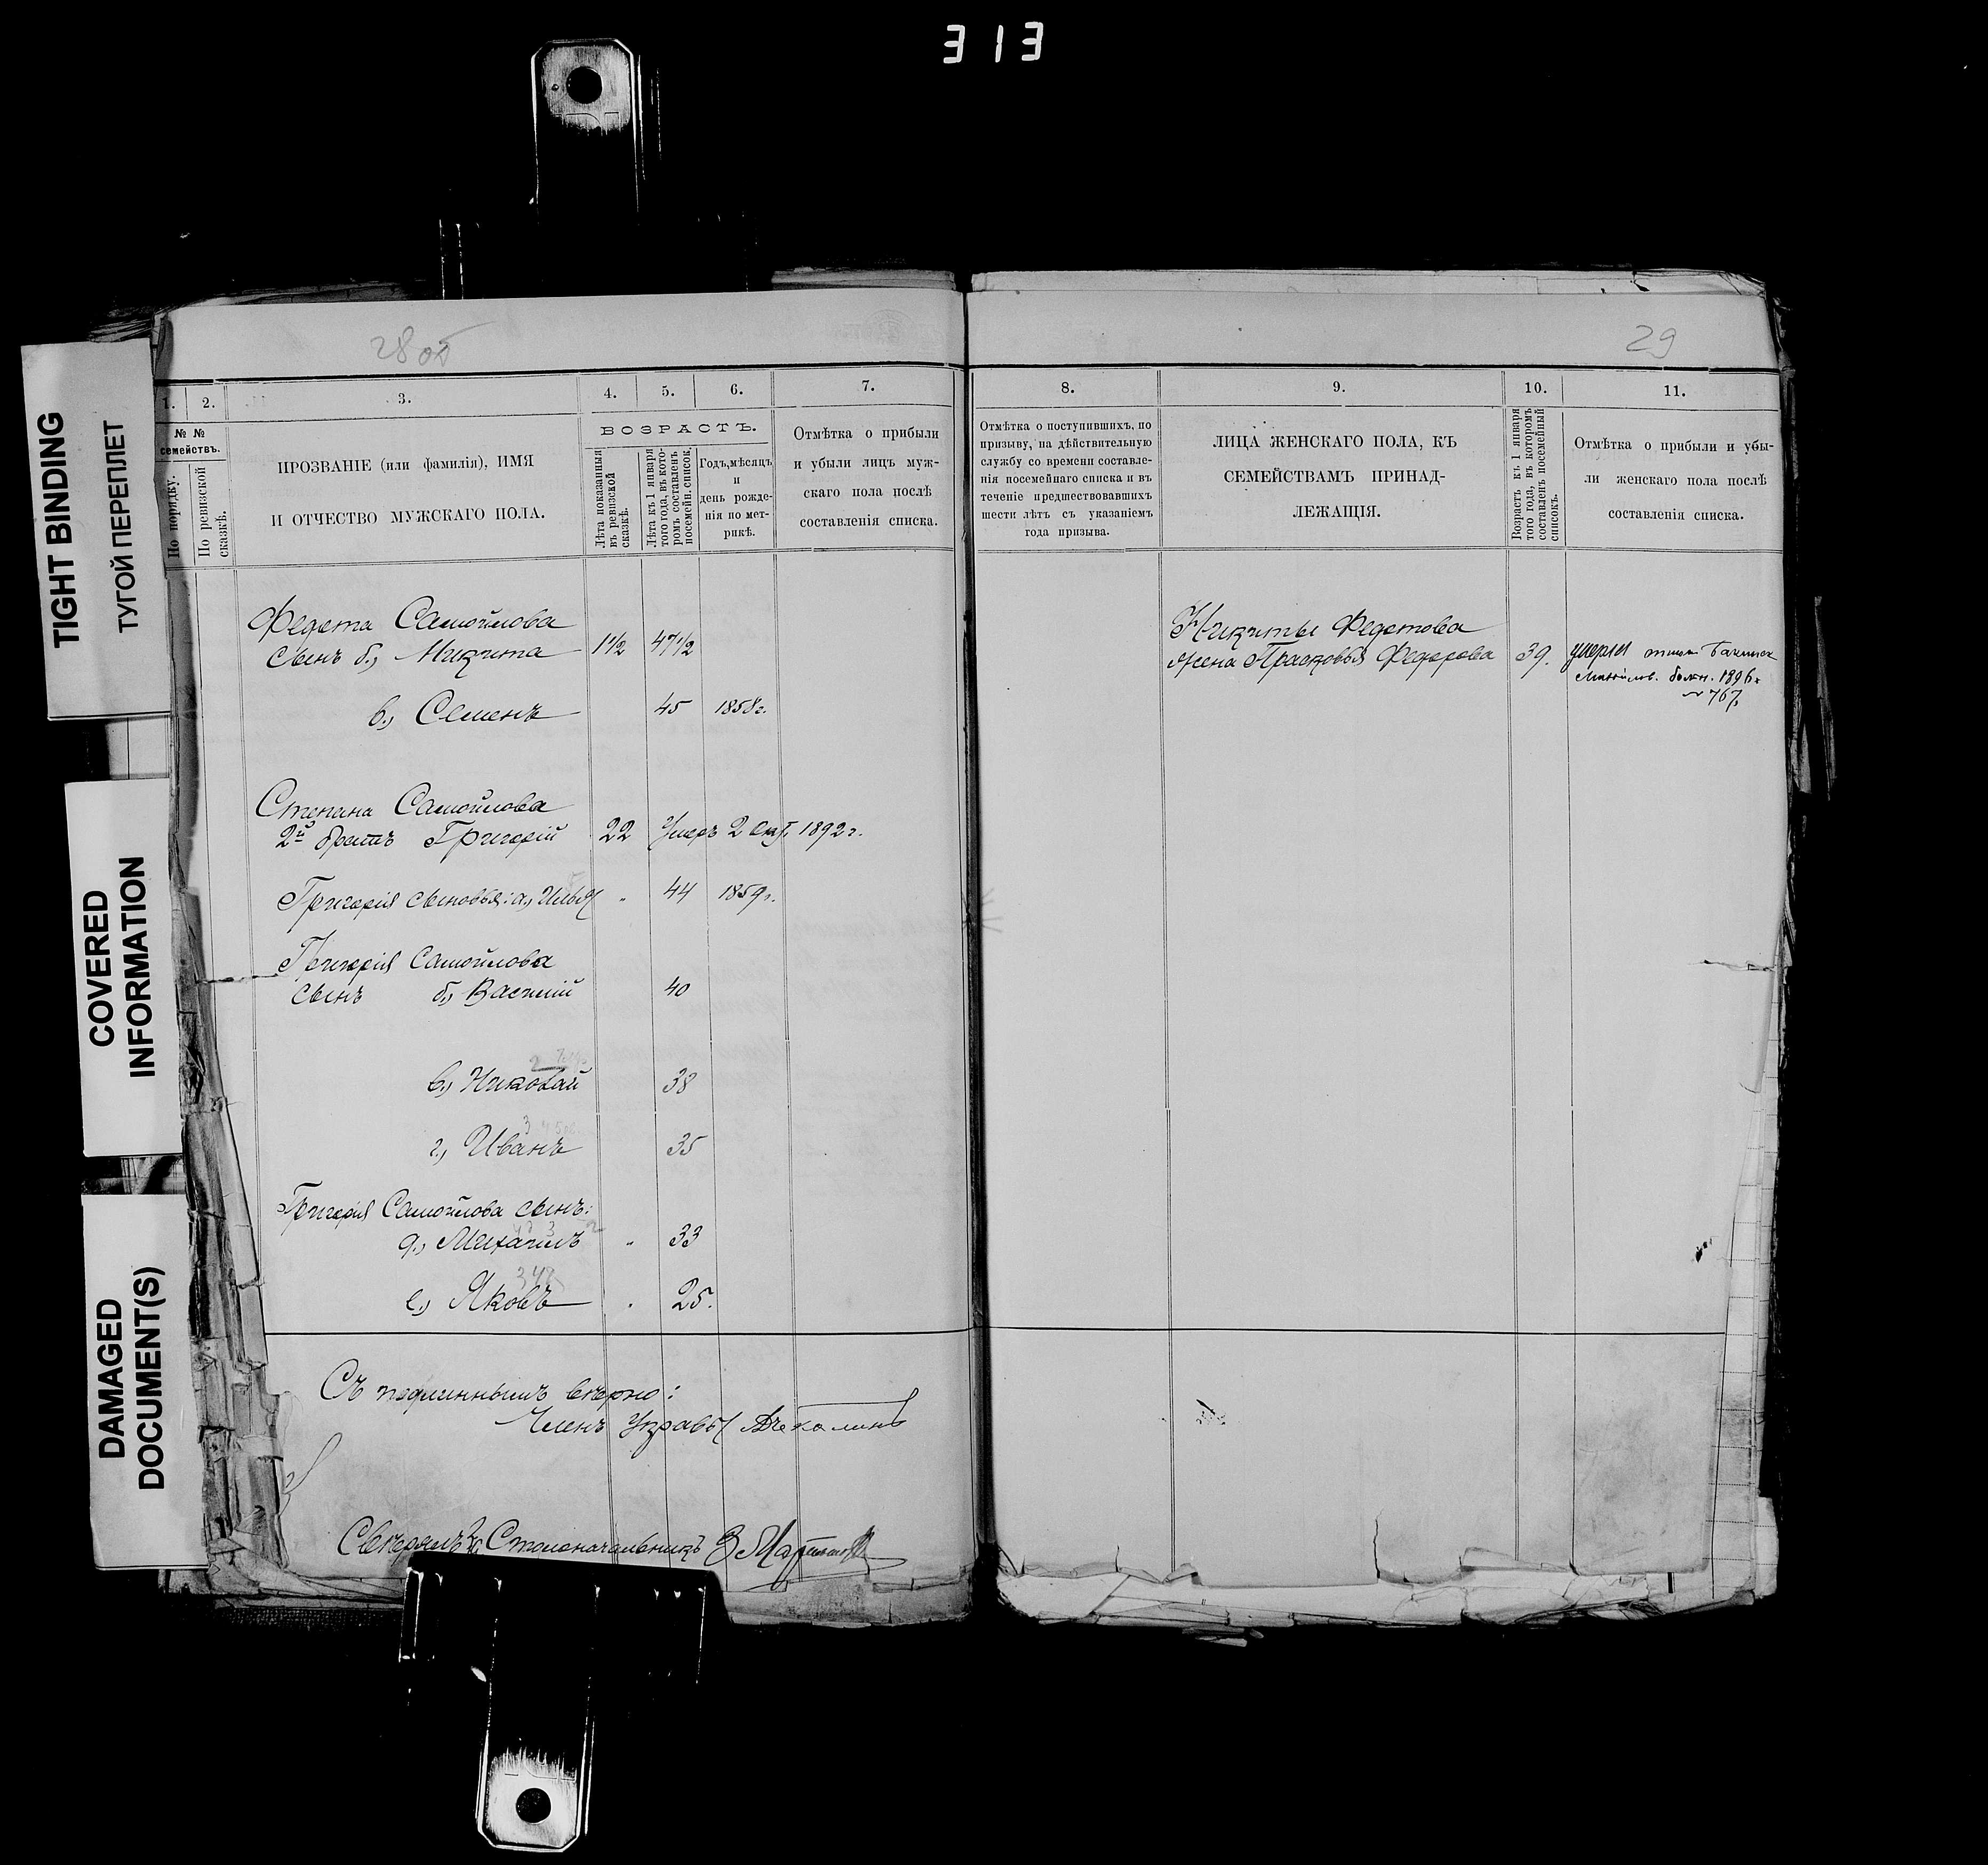 313
TIGHT BINDING
ТУГОЙ ПЕРЕПЛЕТ
COVERED
INFORMATION
DAMAGED
DOCUMENT(S)
28 об
1.
2.
3.
4.
5.
6.
7.
№ №
семействъ.
По порядку.
По ревизской
сказкѣ.
ПРОЗВАНІЕ (или фамилія), ИМЯ
И ОТЧЕСТВО МУЖСКАГО ПОЛА.
ВОЗРАСТЪ.
Лѣта показанныя
въ ревизской
сказкѣ.
Лѣта къ 1 января
того года, въ кото-
ромъ составленъ
посемейн. список.
Годъ, мѣсяцъ
и
день рожде-
нія по мет-
рикѣ.
Отмѣтка о прибыли
и убыли лицъ муж-
скаго пола послѣ
составленія списка.
Федота Самойлова
сынъ б., Никита 11/2 471/2
в., Семенъ 45 1858г.
Степана Самойлова
2й братъ Григорій 22 Умеръ 2 Окт. 1892 г.
Григорія сыновья: а., Илья " 44 1859г.
Григорія Самойлова
сынъ б., Василій 40
в., Николай 38
г., Иванъ 35
Григорія Самойлова сынъ:
д., Михаилъ " 33
е., Яковъ " 25.
Съ подлиннымъ вѣрно:
Членъ Управы
Свѣрялъ: Столоначальникъ
29
8.
9.
10.
11.
Отмѣтка о поступившихъ, по
призыву, на дѣйствительную
службу со времени составле-
нія посемейнаго списка и въ
теченіе предшествовавшихъ
шести лѣтъ съ указаніемъ
года призыва.
ЛИЦА ЖЕНСКАГО ПОЛА, КЪ
СЕМЕЙСТВАМЪ ПРИНАД-
ЛЕЖАЩІЯ.
Возрастъ къ 1 января
того года, въ которомъ
составленъ посемейный
списокъ.
Отмѣтка о прибыли и убы-
ли женскаго пола послѣ
составленія списка.
Никиты Федотова
жена Прасковья Федорова 39. умерла
1896г
№ 767